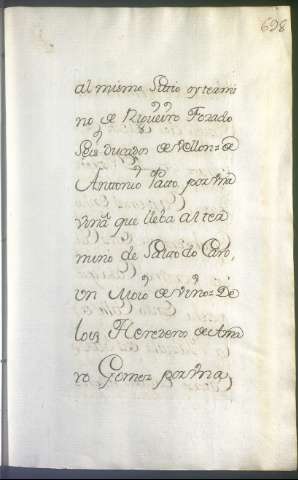 698
al mismo Sitio y termi
no de Riqueiro Forado
Seis ducados de Vellon = de
Antonio Pato por una
viña que lleba al ter
mino de Souto do Caro,
un Moio de vino = De
Luis Herevero de Ama
ro Gomez por una